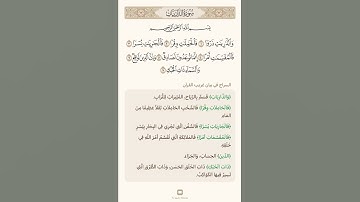 سورة الذاريات
بسم الله الرحمن الرحيم
والذاريات ذروا ١ فالحاملات وقرا ٢ فالجاريات يسرا ٣
فالمقسمات أمرا ٤ إنما توعدون لصادق ٥ وإن الدين لواقع ٦
والسماء ذات الحبك ٧
السراج في بيان غريب القرآن
﴿والذاريات﴾ قسم بالرياح، المثيرات للتراب.
﴿فالحاملات وقرا﴾ فالسحب الحاملات ثقلا عظيما من
الماء.
﴿فالجاريات يسرا﴾ فالسفن التي تجري في البحار بيسر.
﴿فالمقسمات أمرا﴾ فالملائكة التي تقسم أمر الله في
خلقه.
﴿الدين﴾ الحساب، والجزاء.
﴿ذات الحبك﴾ ذات الخلق الحسن، وذات الطرق التي
تسير فيها الكواكب.